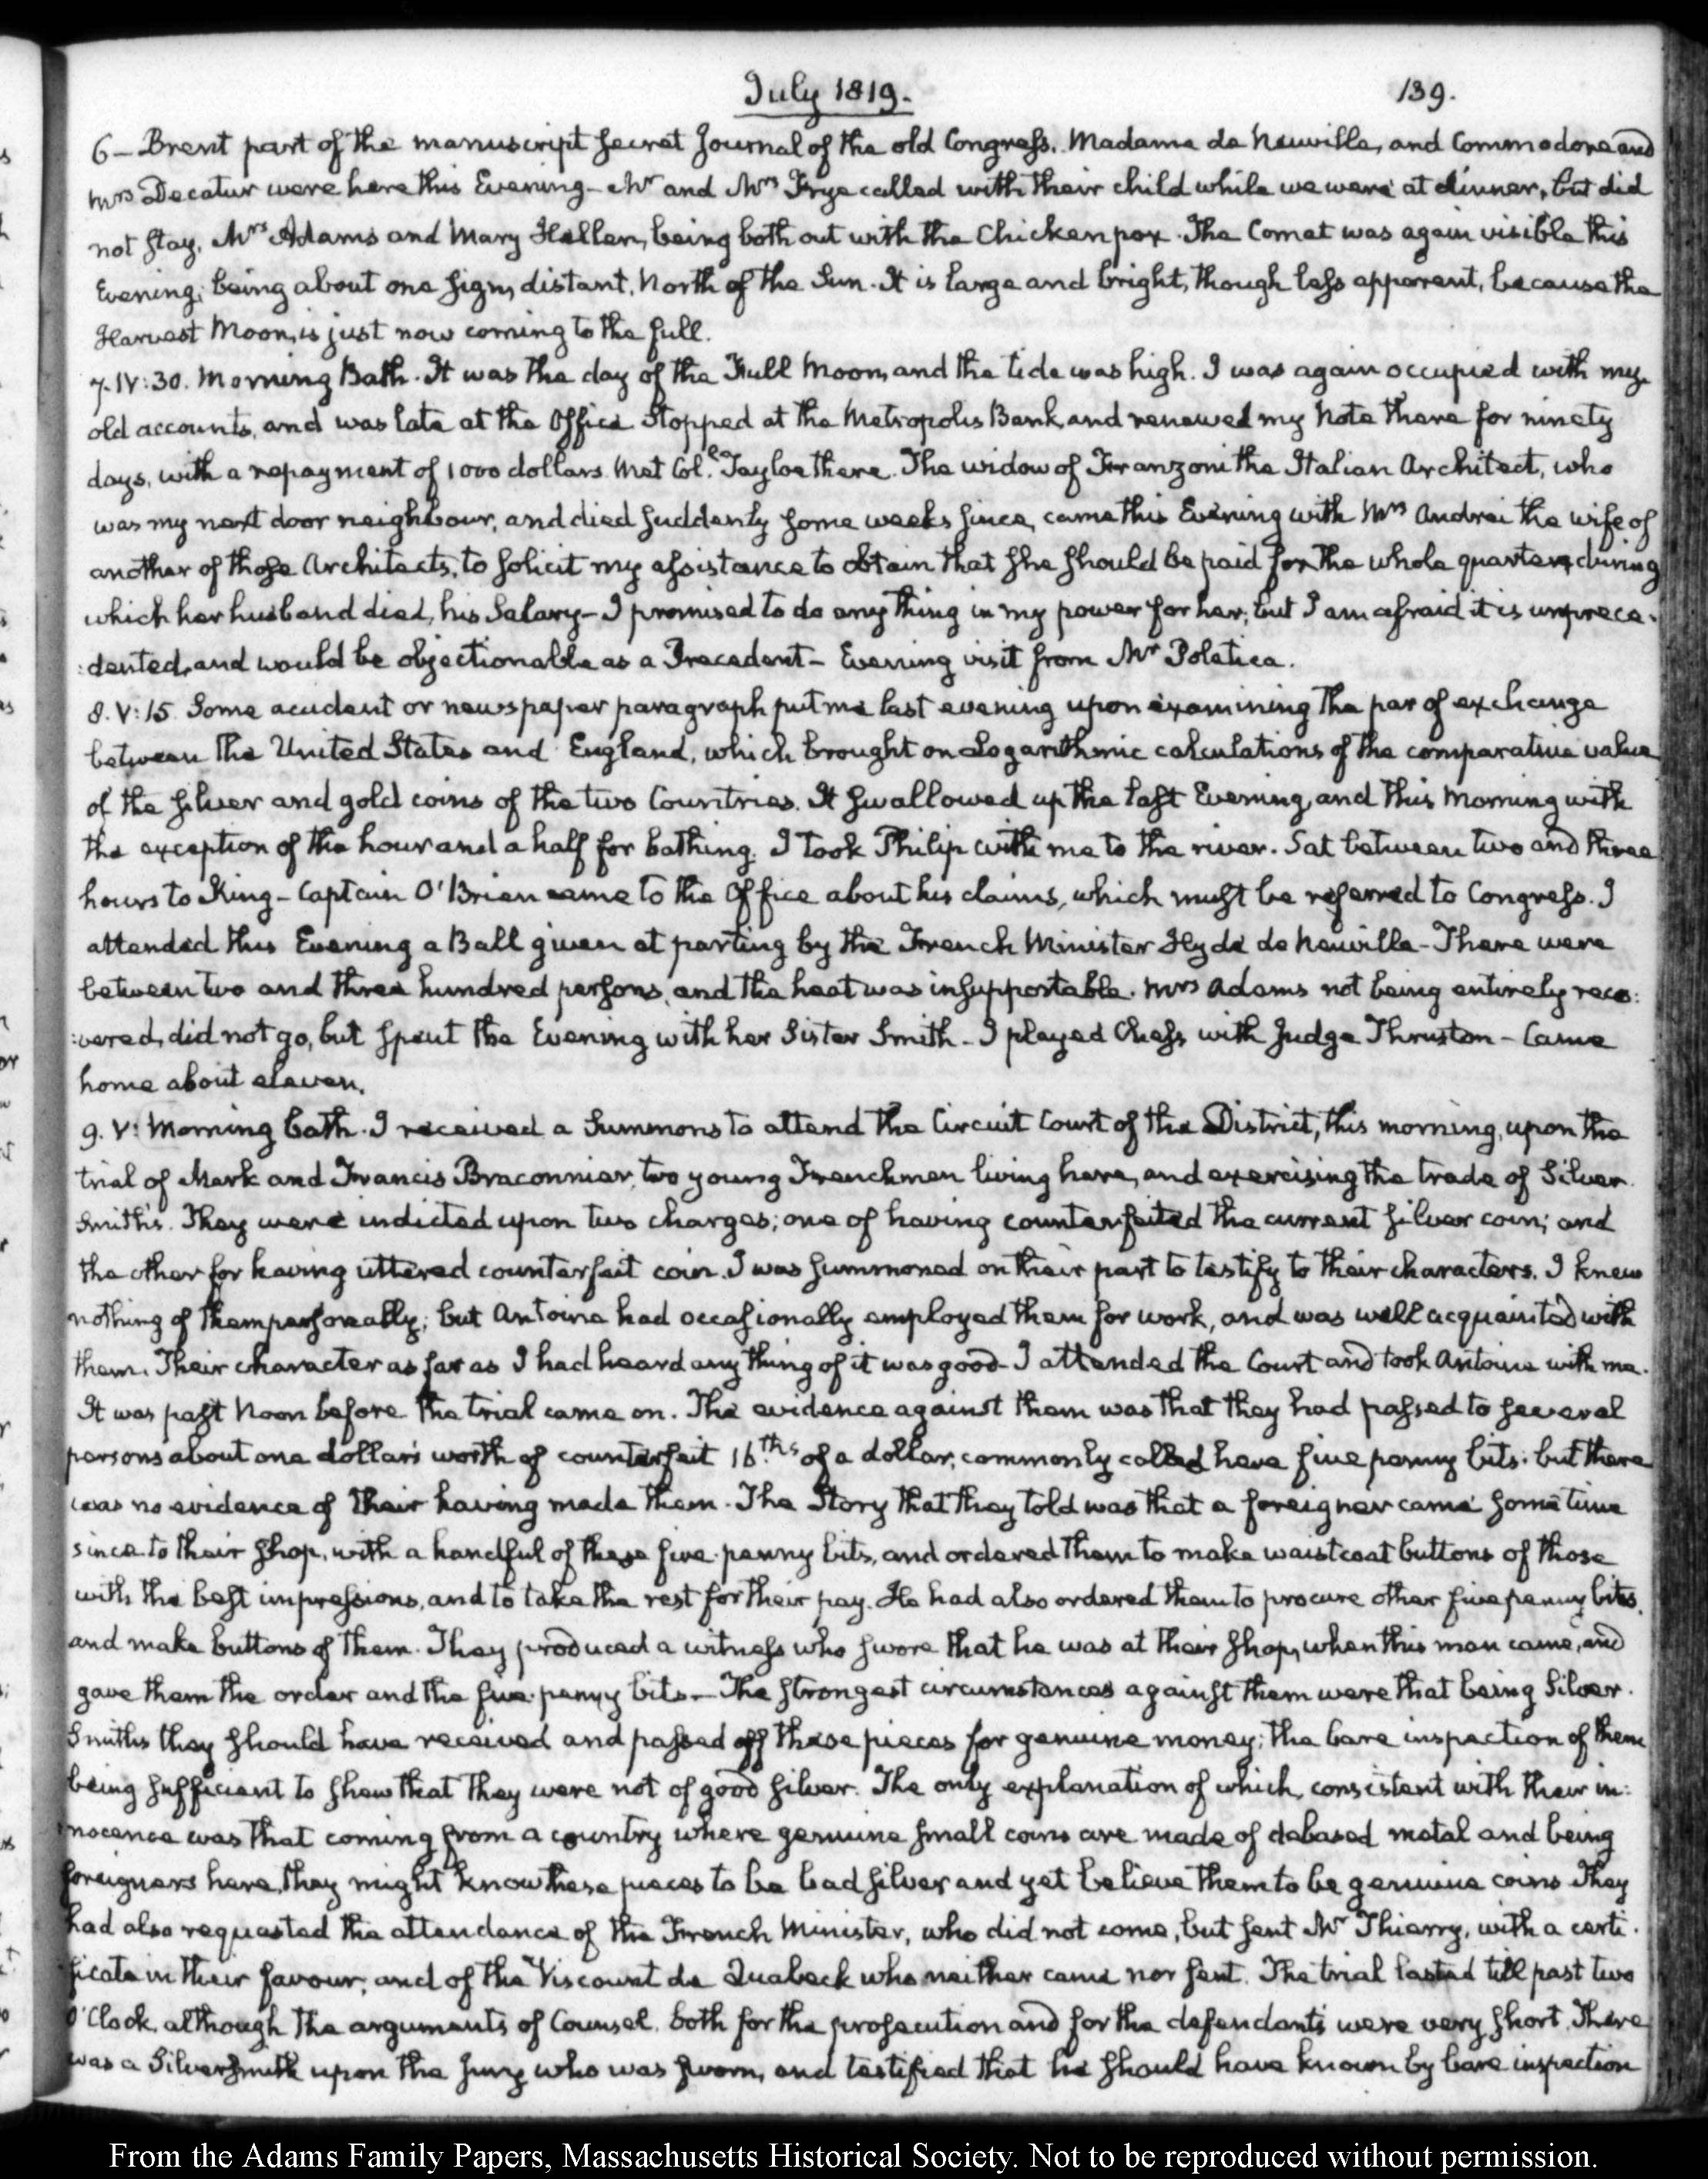 July 1819.
139.
6 — Brent part of the manuscript secret Journal of the old Congress. Madame de Neuville, and Commodore and
Mrs Decatur were here this Evening — Mr and Mrs Frye called with their child while we were at dinner, but did
not stay, Mrs Adams and Mary Hellen, being both out with the Chicken pox. The Comet was again visible this
Evening; being about one sign, distant, North of the Sun. It is large and bright, though less apparent, because the
Harvest Moon, is just now coming to the full.
7. IV:30. Morning Bath. It was the day of the Full Moon, and the tide was high. I was again occupied with my
old accounts, and was late at the Office. Stopped at the Metropolis Bank, and renewed my Note there for ninety
days, with a repayment of 1000 dollars. Met Col. Tayloe there. The widow of Franzoni the Italian Architect, who
was my next door neighbour, and died suddenly some weeks since, came this Evening with Mrs Andrei the wife of
another of those Architects, to solicit my assistance to obtain that she should be paid for the whole quarter, during
which her husband died, his Salary — I promised to do any thing in my power for her; but I am afraid it is unprece-
:dented, and would be objectionable as a Precedent — Evening visit from Mr Poletica.
8. V:15. Some accident or newspaper paragraph put me last evening upon examining the par of exchange
between the United States and England, which brought on Logarithmic calculations of the comparative value
of the silver and gold coins of the two Countries. It swallowed up the last Evening, and this Morning with
the exception of the hour and a half for bathing. I took Philip with me to the river. Sat between two and three
hours to King — Captain O'Brien came to the Office about his claims, which must be referred to Congress. I
attended this Evening a Ball given at parting by the French Minister Hyde de Neuville — There were
between two and three hundred persons, and the heat was insupportable. Mrs Adams not being entirely reco:
:vered, did not go, but spent the Evening with her Sister Smith — I played Chess with Judge Thruston — Came
home about eleven.
9. V: Morning bath. I received a Summons to attend the Circuit Court of the District, this morning, upon the
trial of Mark and Francis Braconnier, two young Frenchmen living here, and exercising the trade of Silver
Smiths. They were indicted upon two charges; one of having counterfeited the current silver coin; and
the other for having uttered counterfeit coin. I was summoned on their part to testify to their characters. I knew
nothing of them personally; but Antoine had occasionally employed them for work, and was well acquainted with
them. Their character as far as I had heard any thing of it was good — I attended the Court and took Antoine with me.
It was past Noon before the trial came on. The evidence against them was that they had passed to several
persons about one dollar's worth of counterfeit 16.ths of a dollar, commonly called here five penny bits; but there
was no evidence of their having made them. The Story that they told was that a foreigner came some time
since to their shop, with a handful of these five-penny bits, and ordered them to make waistcoat buttons of those
with the best impressions, and to take the rest for their pay. He had also ordered them to procure other five penny bits,
and make buttons of them. They produced a witness who swore that he was at their shop, when this man came, and
gave them the order and the five-penny bits — The strongest circumstances against them were that being Silver-
Smiths they should have received and passed off these pieces for genuine money; the bare inspection of them
being sufficient to show that they were not of good silver. The only explanation of which, consistent with their in:
nocence was that coming from a country where genuine small coins are made of debased metal and being
foreigners here, they might know these pieces to be bad silver and yet believe them to be genuine coins. They
had also requested the attendance of the French Minister, who did not come, but sent Mr Thierry, with a certi-
ficate in their favour; and of the Viscount de Quabeck who neither came nor sent. The trial lasted till past two
O'Clock, although the arguments of Counsel, both for the prosecution and for the defendants were very short. There
was a Silversmith upon the Jury who was sworn, and testified that he should have known by bare inspection
From the Adams Family Papers, Massachusetts Historical Society. Not to be reproduced without permission.